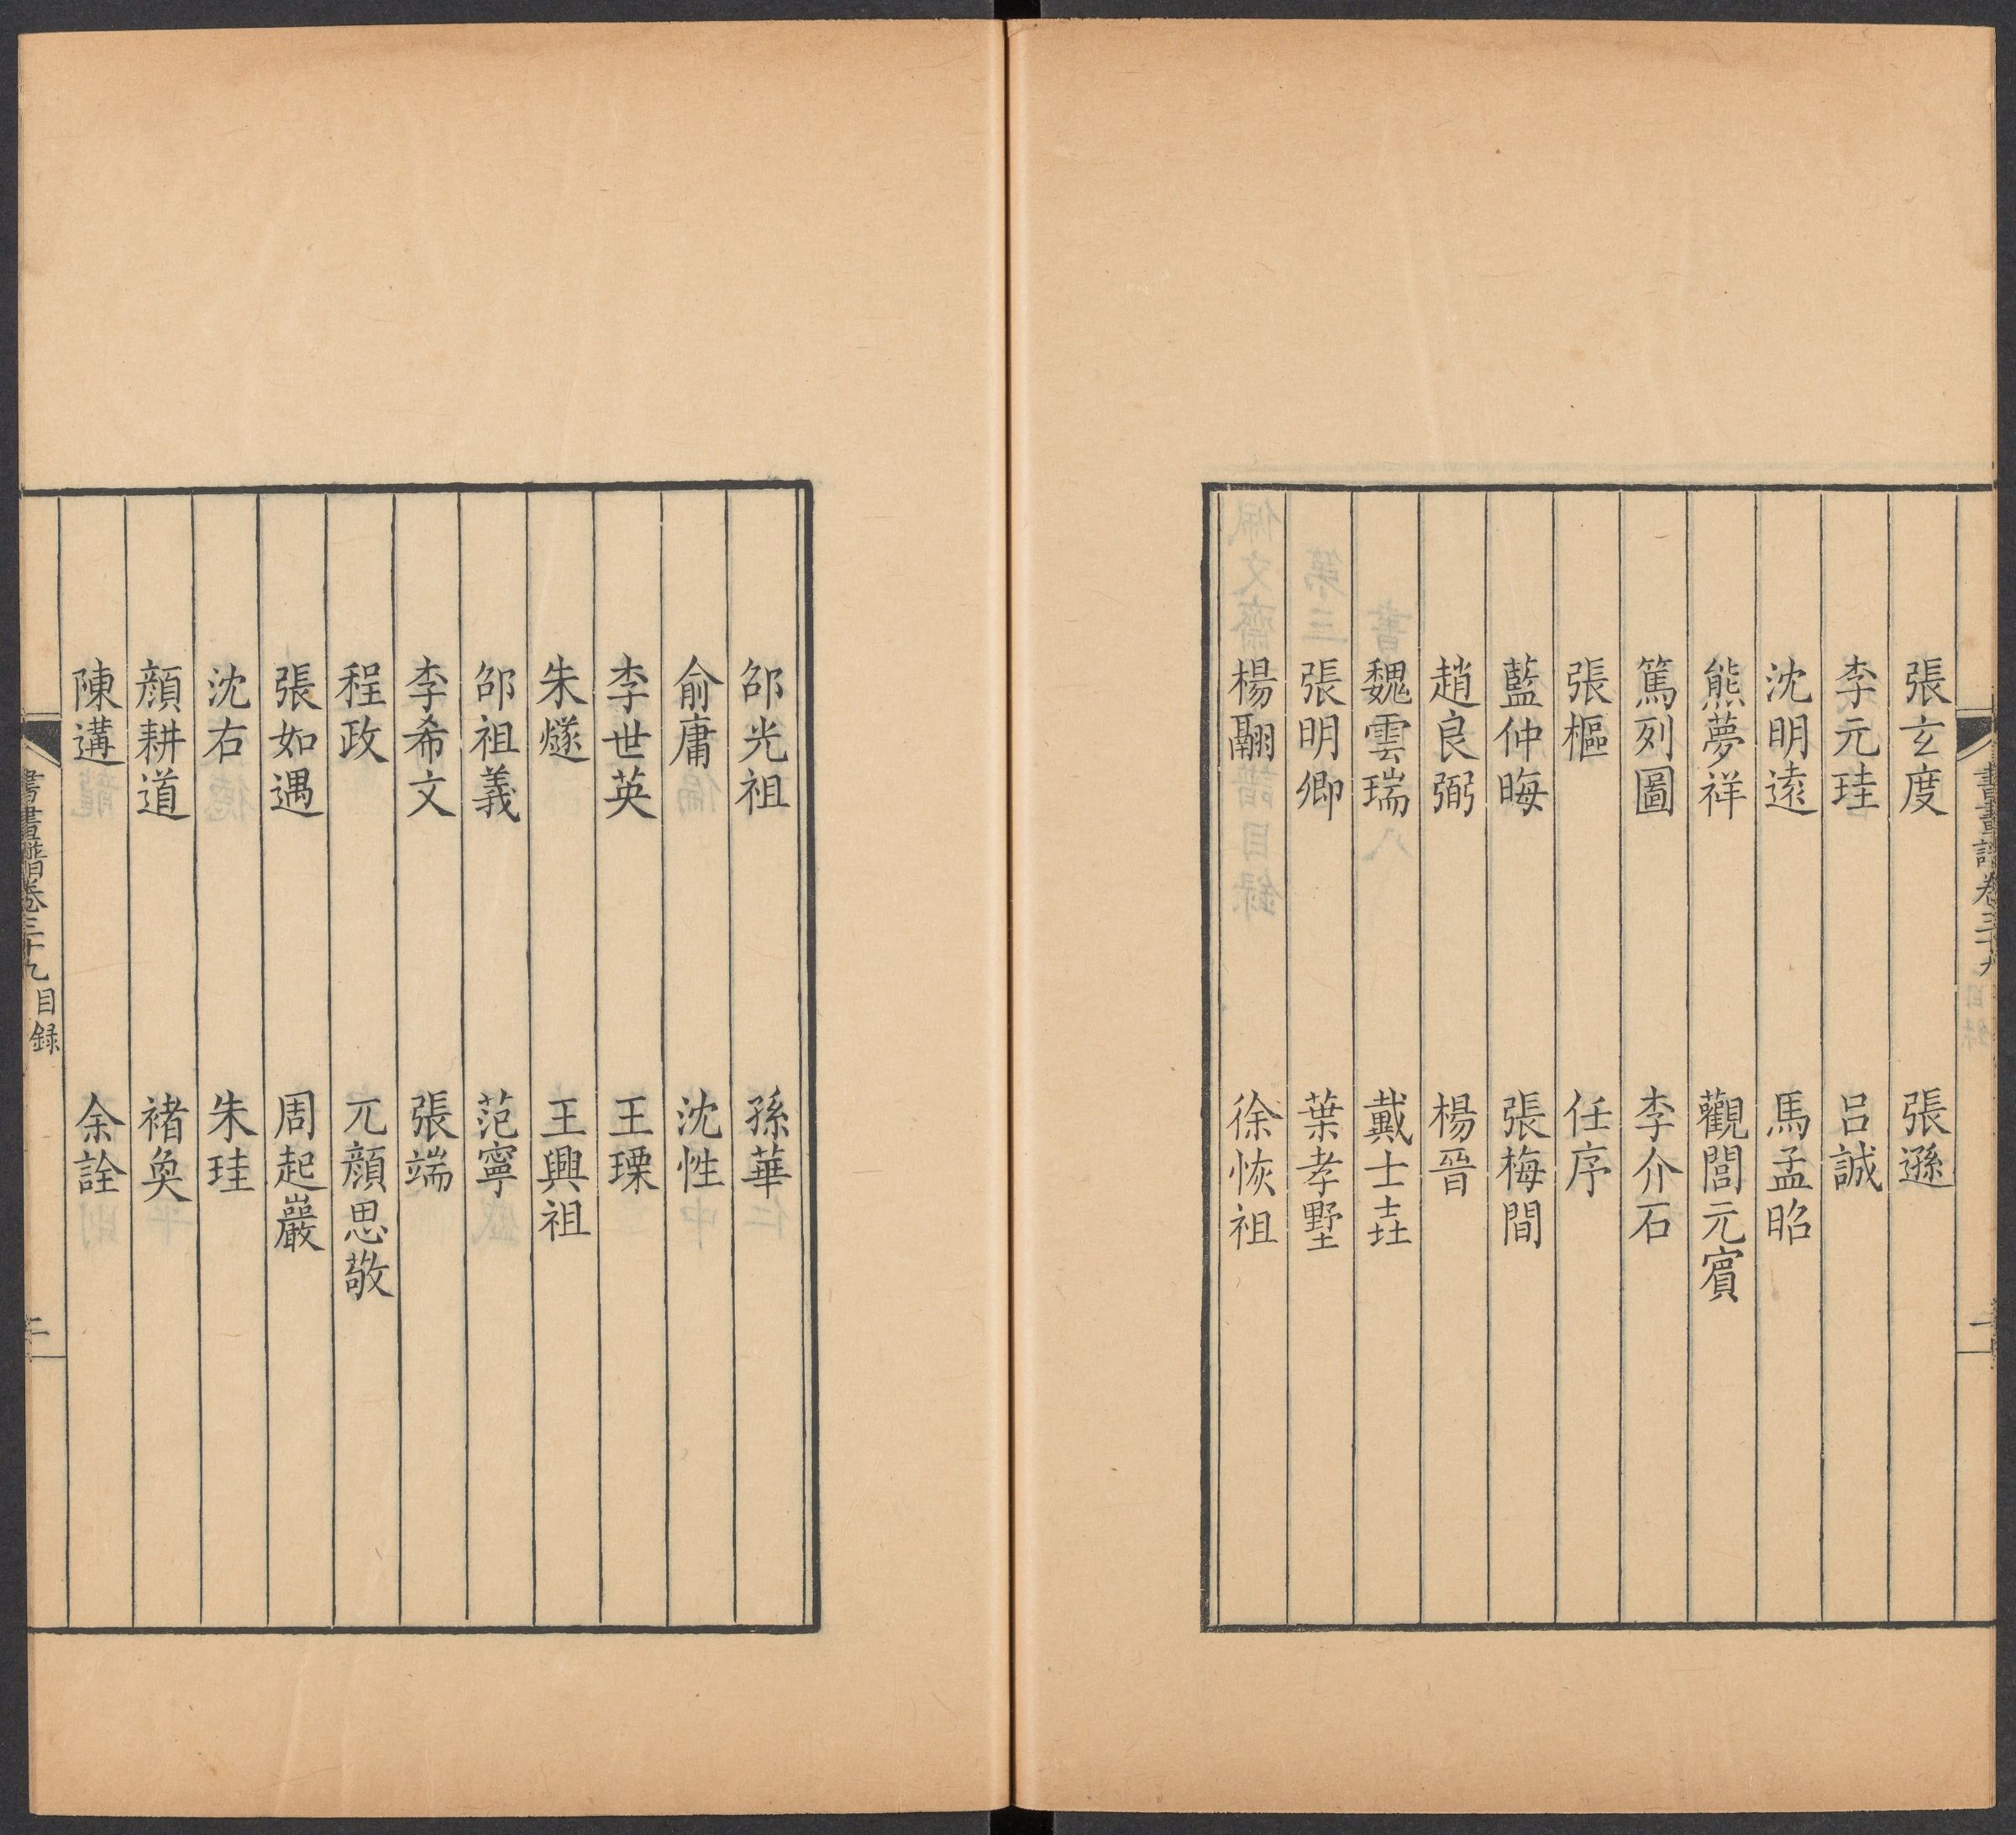 張玄度 張遜
李元珪 呂誠
沈明遠 馬孟昭
熊夢祥 觀閭元賓
篤列圖 李介石
張樞 任序
藍仲晦 張梅間
趙良弼 楊晉
魏雲瑞 戴士壵
張明卿 葉孝墅
楊翮 徐恢祖
書畫譜卷三十九 目録 一
邵光祖 孫華
俞庸 沈性
李世英 王瓅
朱燧 王興祖
邵祖義 范寧
李希文 張端
程政 兀顔思敬
張如遇 周起巖
沈右 朱珪
顔耕道 褚奐
陳遘 余詮
書畫譜卷三十九 目録 二